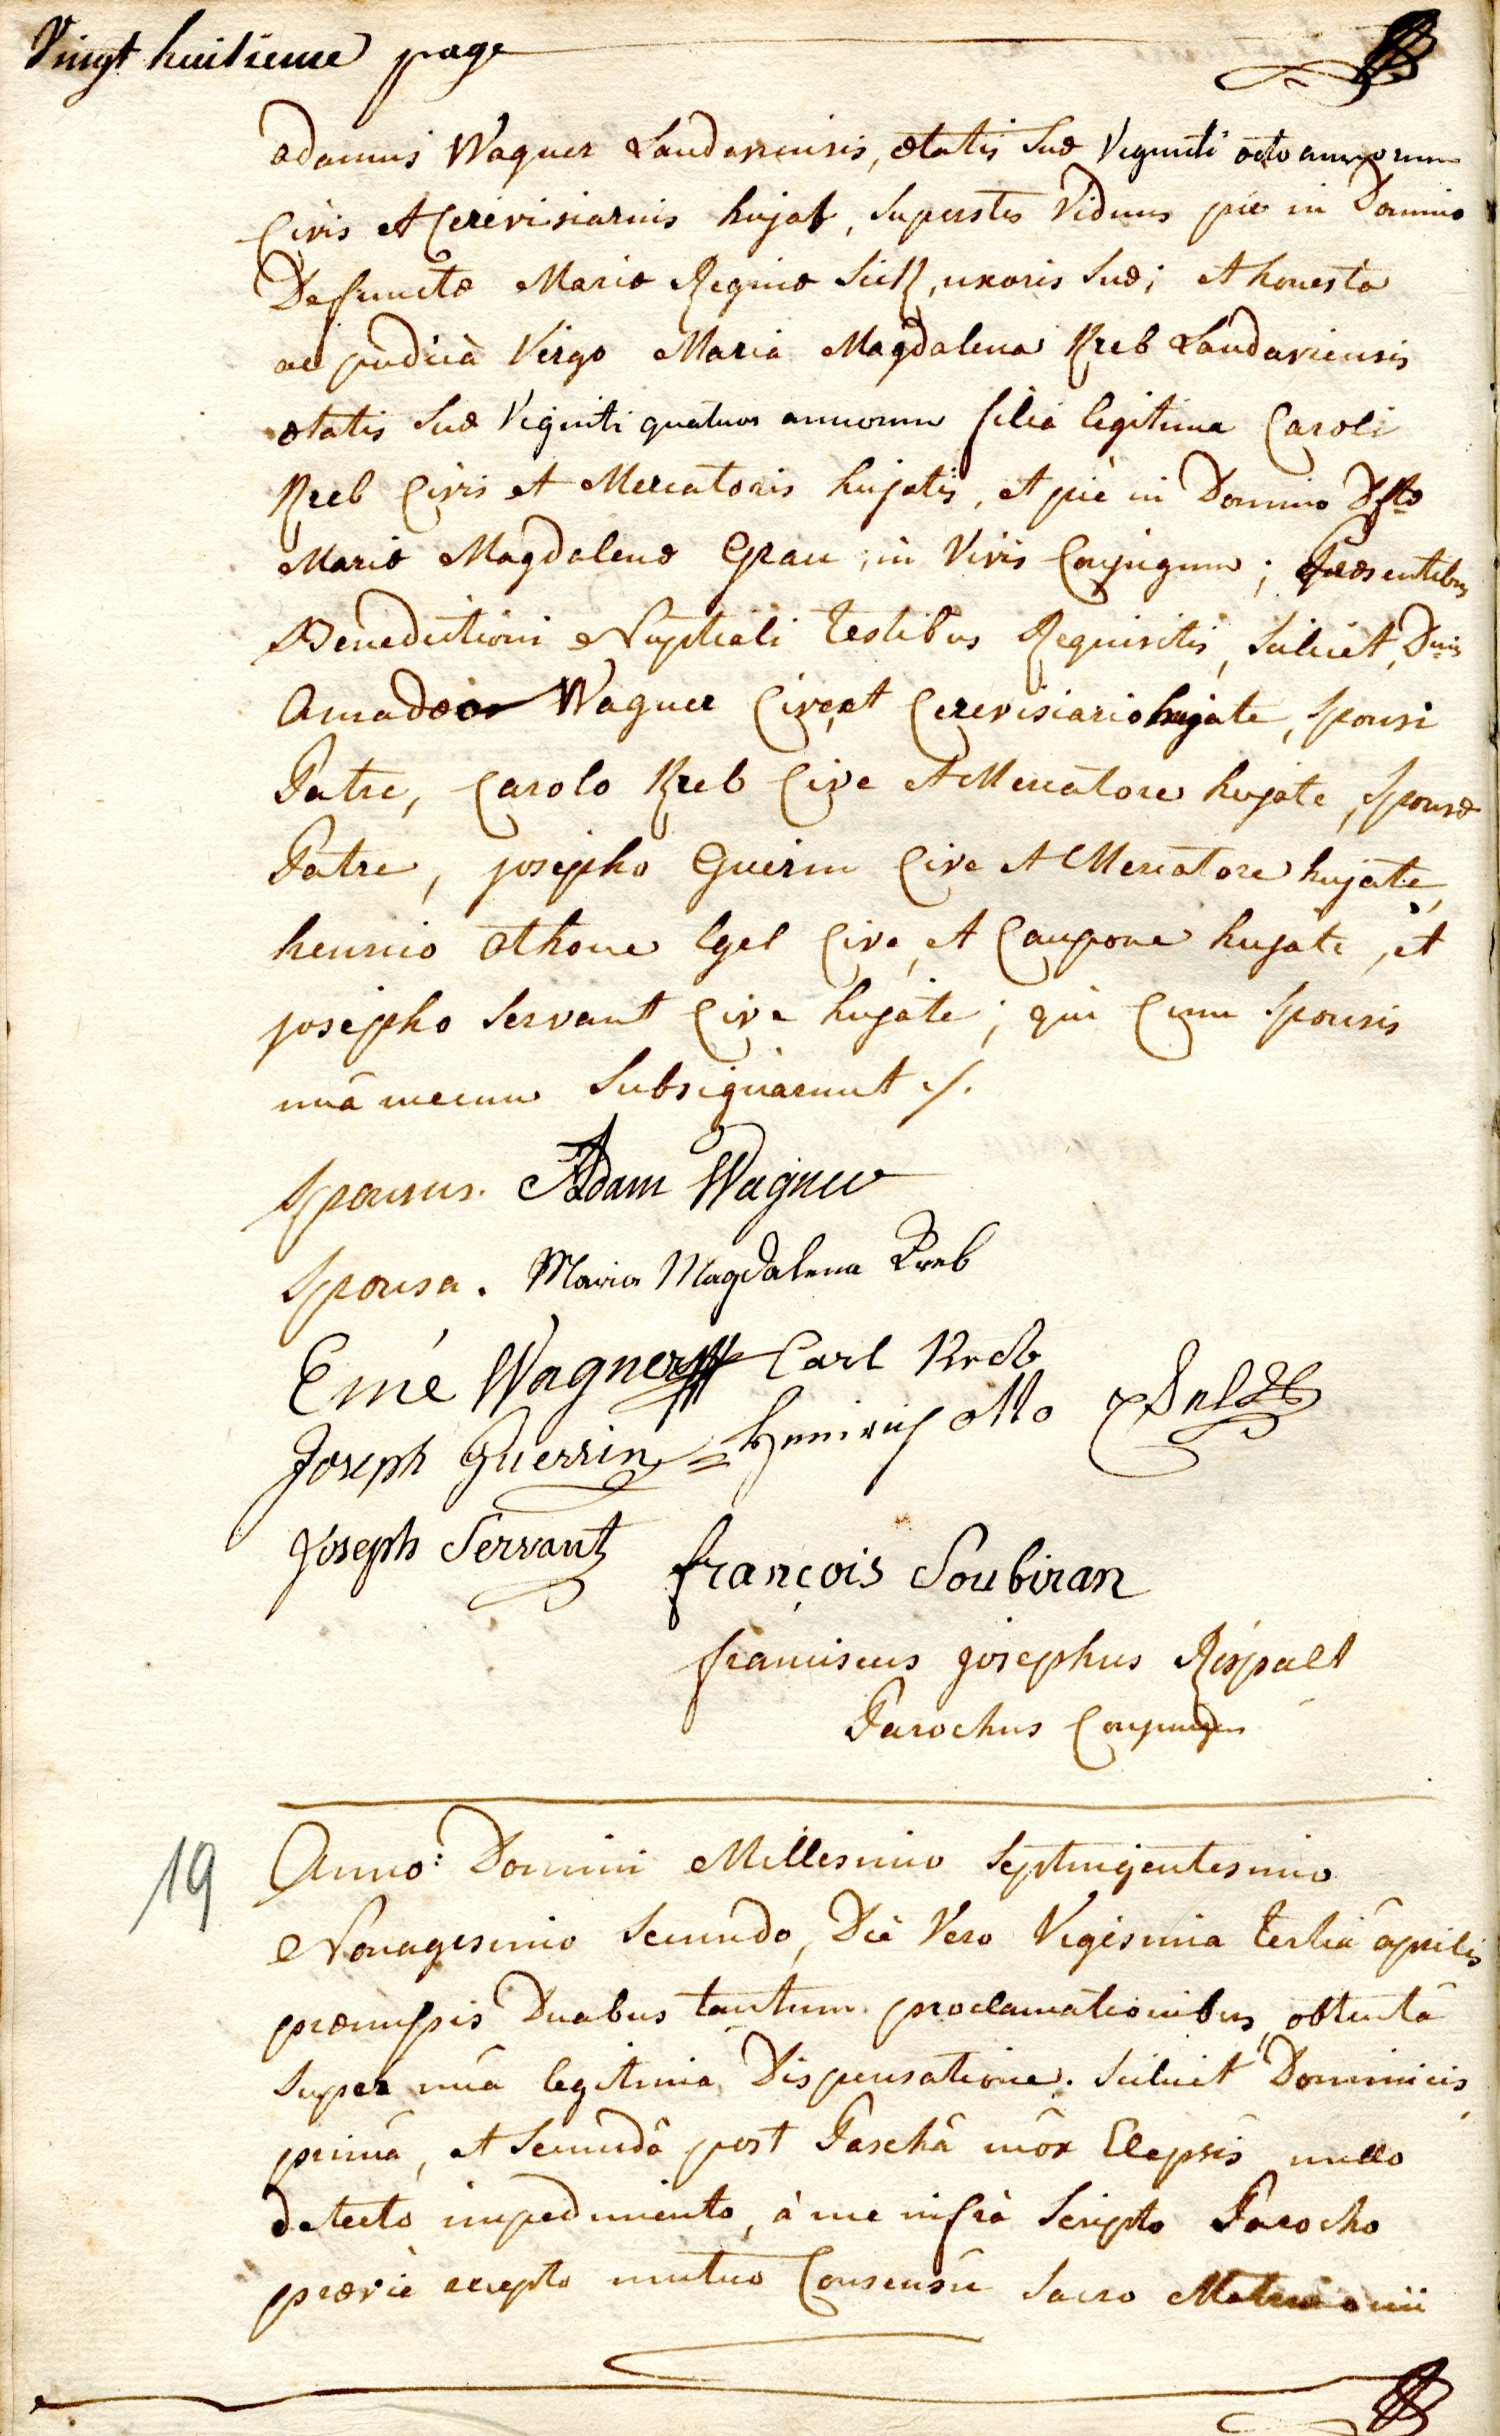 Vingt huitieme page
adamus Wagner Landaviensis, ætatis suæ Viginti octo annorum
Civis et Cerevisiarius hujas, superstes Viduus pie in Domino
Defunctæ Mariæ Reginæ Sick, uxoris suæ; et honesta
ac pudica Virgo Maria Magdalena Kreb Landaviensis
ætatis suæ Viginti quatuor annorum filia legitima Caroli
Kreb Civis et Mercatoris hujatis, et pie in Domino Dftæ
Mariæ Magdalenæ Grau, in Vivis Conjugum; Præsentibus
Benedictioni Nuptiali testibus Requisitis, scilicet, Dnis
Amadæo Wagner Cive et Cerevisiario hujate, sponsi
Patre, Carolo Kreb Cive et Mercatore hujate, sponsæ
Patre, josepho Guerin Cive et Mercatore hujate,
henrico othone Egel Cive, et Caupone hujate, et
josepho Servant Cive hujate; qui Cum sponsis
unâ mecum subsignarunt ./.
sponsus. Adam Wagner
sponsa. Maria Magdalena Kreb
Emé Wagner Carl Kreb
Joseph Guerrin Heinrich otto
Joseph Servant françois Soubiran
franciscus josephus Rispalt
Parochus
19 Anno: Domini Millesimo septingentesimo
Nonagesimo secundo, Die Vero Vigesima tertiâ aprilis
præmissis Duabus tantum proclamationibus, obtentâ
super unâ legitima Dispensatione. scilicet Dominicis
primâ, et secundâ post Paschâ mox Elapsis nullo
detecto impedimento, à me infrà scripto Parocho
prævie accepto mutuo Consensû sacro Matrimonii